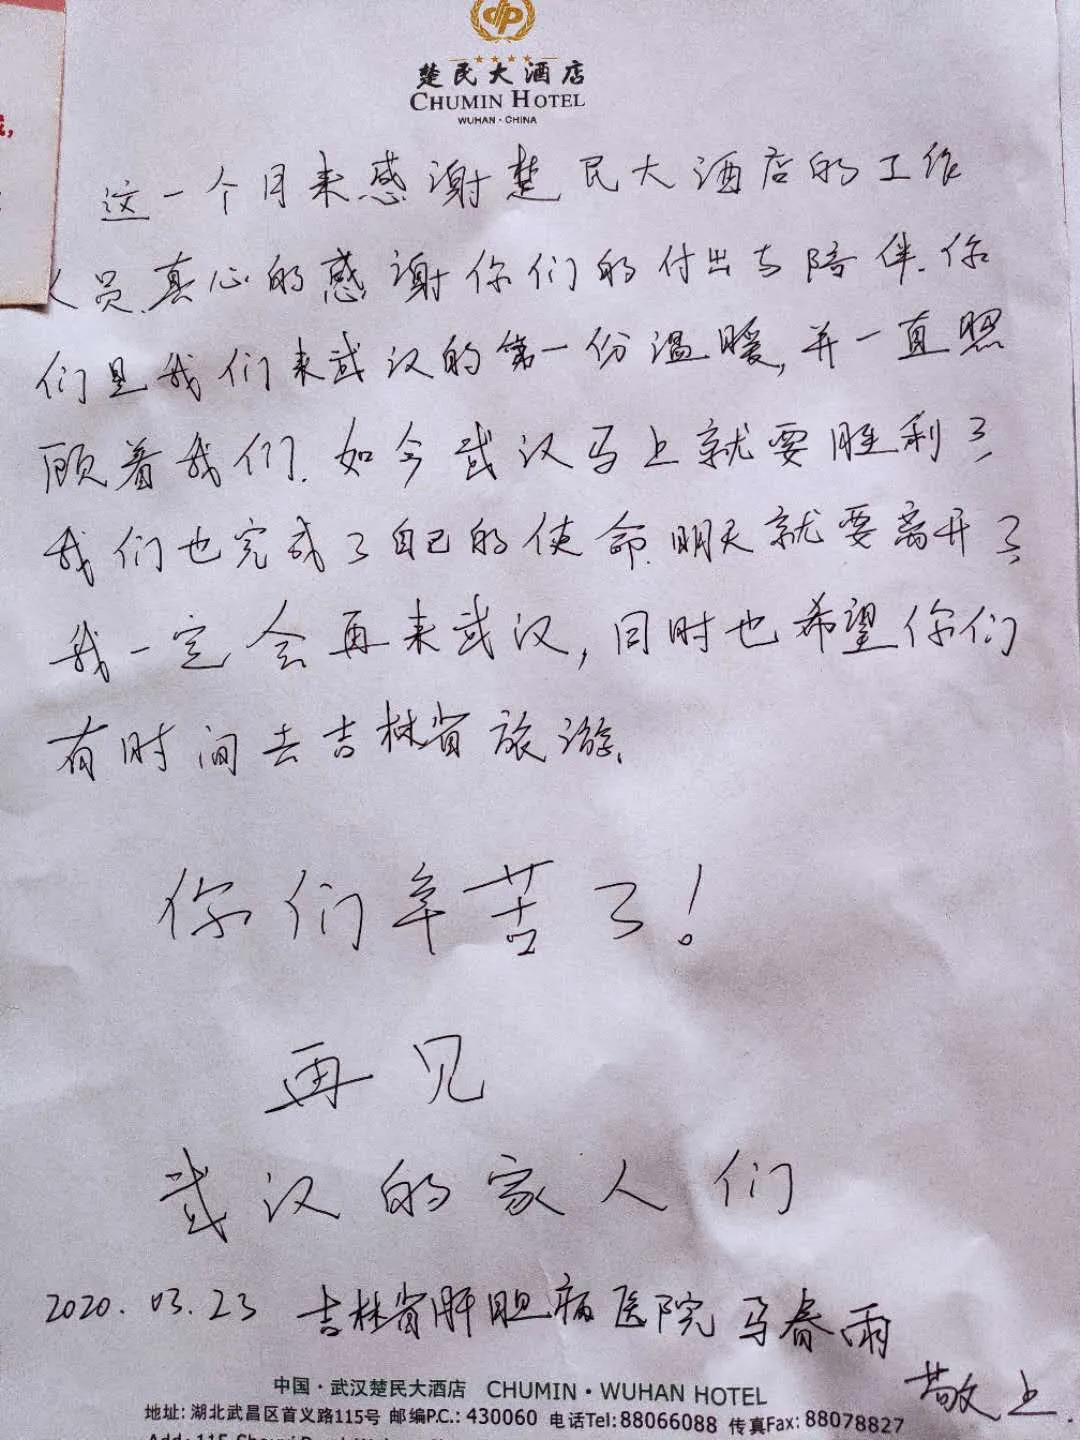 楚民大酒店
CHUMIN HOTEL
WUHAN·CHINA
这一个月来感谢楚民大酒店的工作
人员.真心的感谢你们的付出与陪伴.你
们是我们来武汉的第一份温暖,并一直照
顾着我们.如今武汉马上就要胜利了,
我们也完成了自己的使命.明天就要离开了,
我一定会再来武汉,同时也希望你们
有时间去吉林省旅游.
你们辛苦了!
再见
武汉的家人们
2020.03.23 吉林省肝胆病医院 马春雨
敬上.
中国·武汉楚民大酒店 CHUMIN·WUHAN HOTEL
地址: 湖北武昌区首义路115号 邮编P.C.: 430060 电话Tel:88066088 传真Fax: 88078827